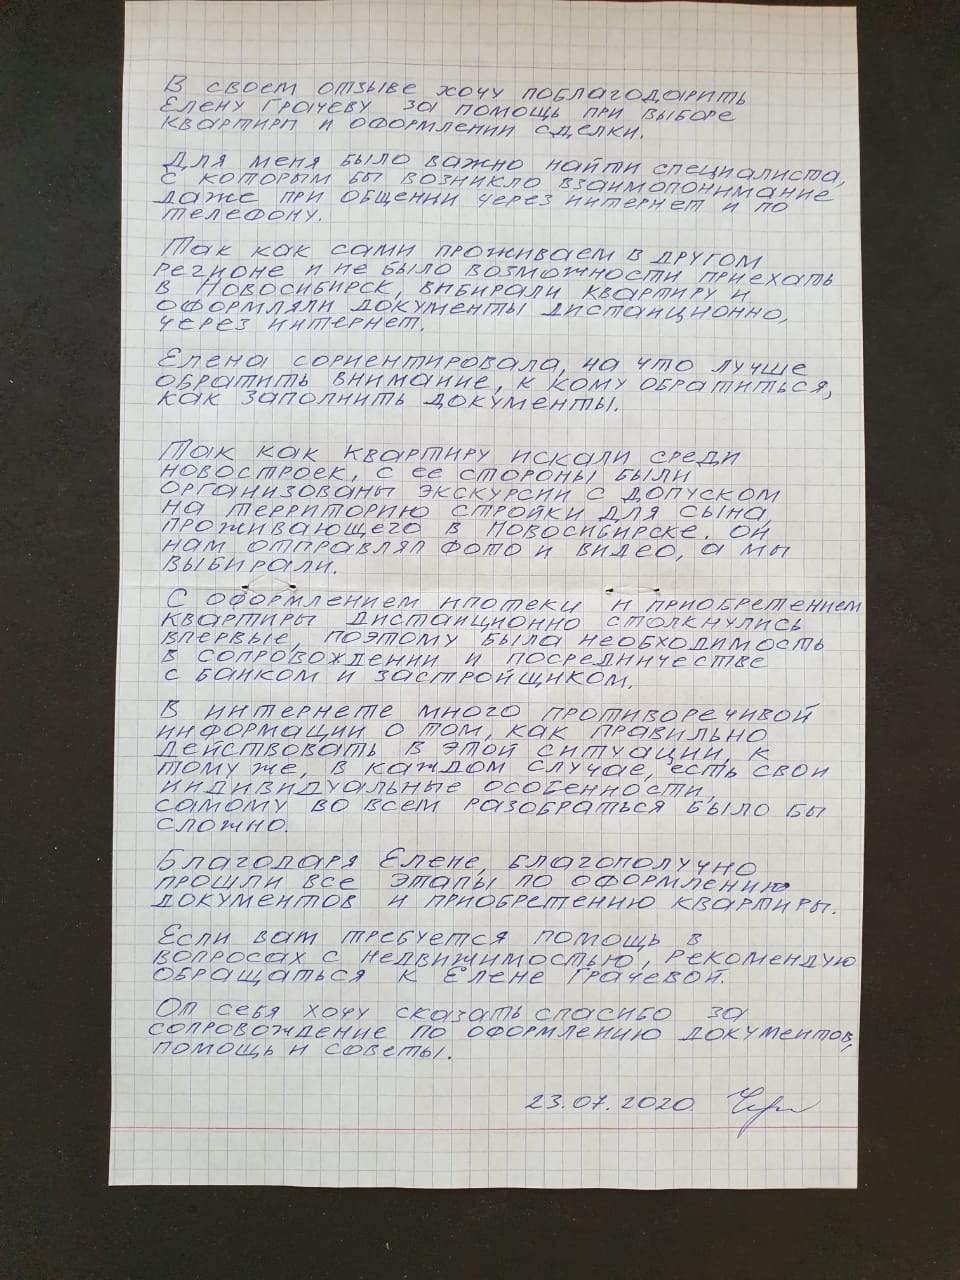 В своем отзыве хочу поблагодарить
Елену Грачеву за помощь при выборе
квартиры и оформлении сделки.
Для меня было важно найти специалиста,
с которым бы возникло взаимопонимание
даже при общении через интернет и по
телефону.
Так как сами проживаем в другом
регионе и не было возможности приехать
в Новосибирск, выбирали квартиру и
оформляли документы дистанционно,
через интернет.
Елена сориентировала, на что лучше
обратить внимание, к кому обратиться,
как заполнить документы.
Так как квартиру искали среди
новостроек, с ее стороны были
организованы экскурсии с допуском
на территорию стройки для сына,
проживающего в Новосибирске. Он
нам отправлял фото и видео, а мы
выбирали.
С оформлением ипотеки и приобретением
квартиры дистанционно столкнулись
впервые, поэтому была необходимость
в сопровождении и посредничестве
с банком и застройщиком.
В интернете много противоречивой
информации о том, как правильно
действовать в этой ситуации, к
тому же, в каждом случае, есть свои
индивидуальные особенности,
самому во всем разобраться было бы
сложно.
Благодаря Елене, благополучно
прошли все этапы по оформлению
документов и приобретению квартиры.
Если вам требуется помощь в
вопросах с недвижимостью, рекомендую
обращаться к Елене Грачевой.
От себя хочу сказать спасибо за
сопровождение по оформлению документов,
помощь и советы.
23.07.2020.